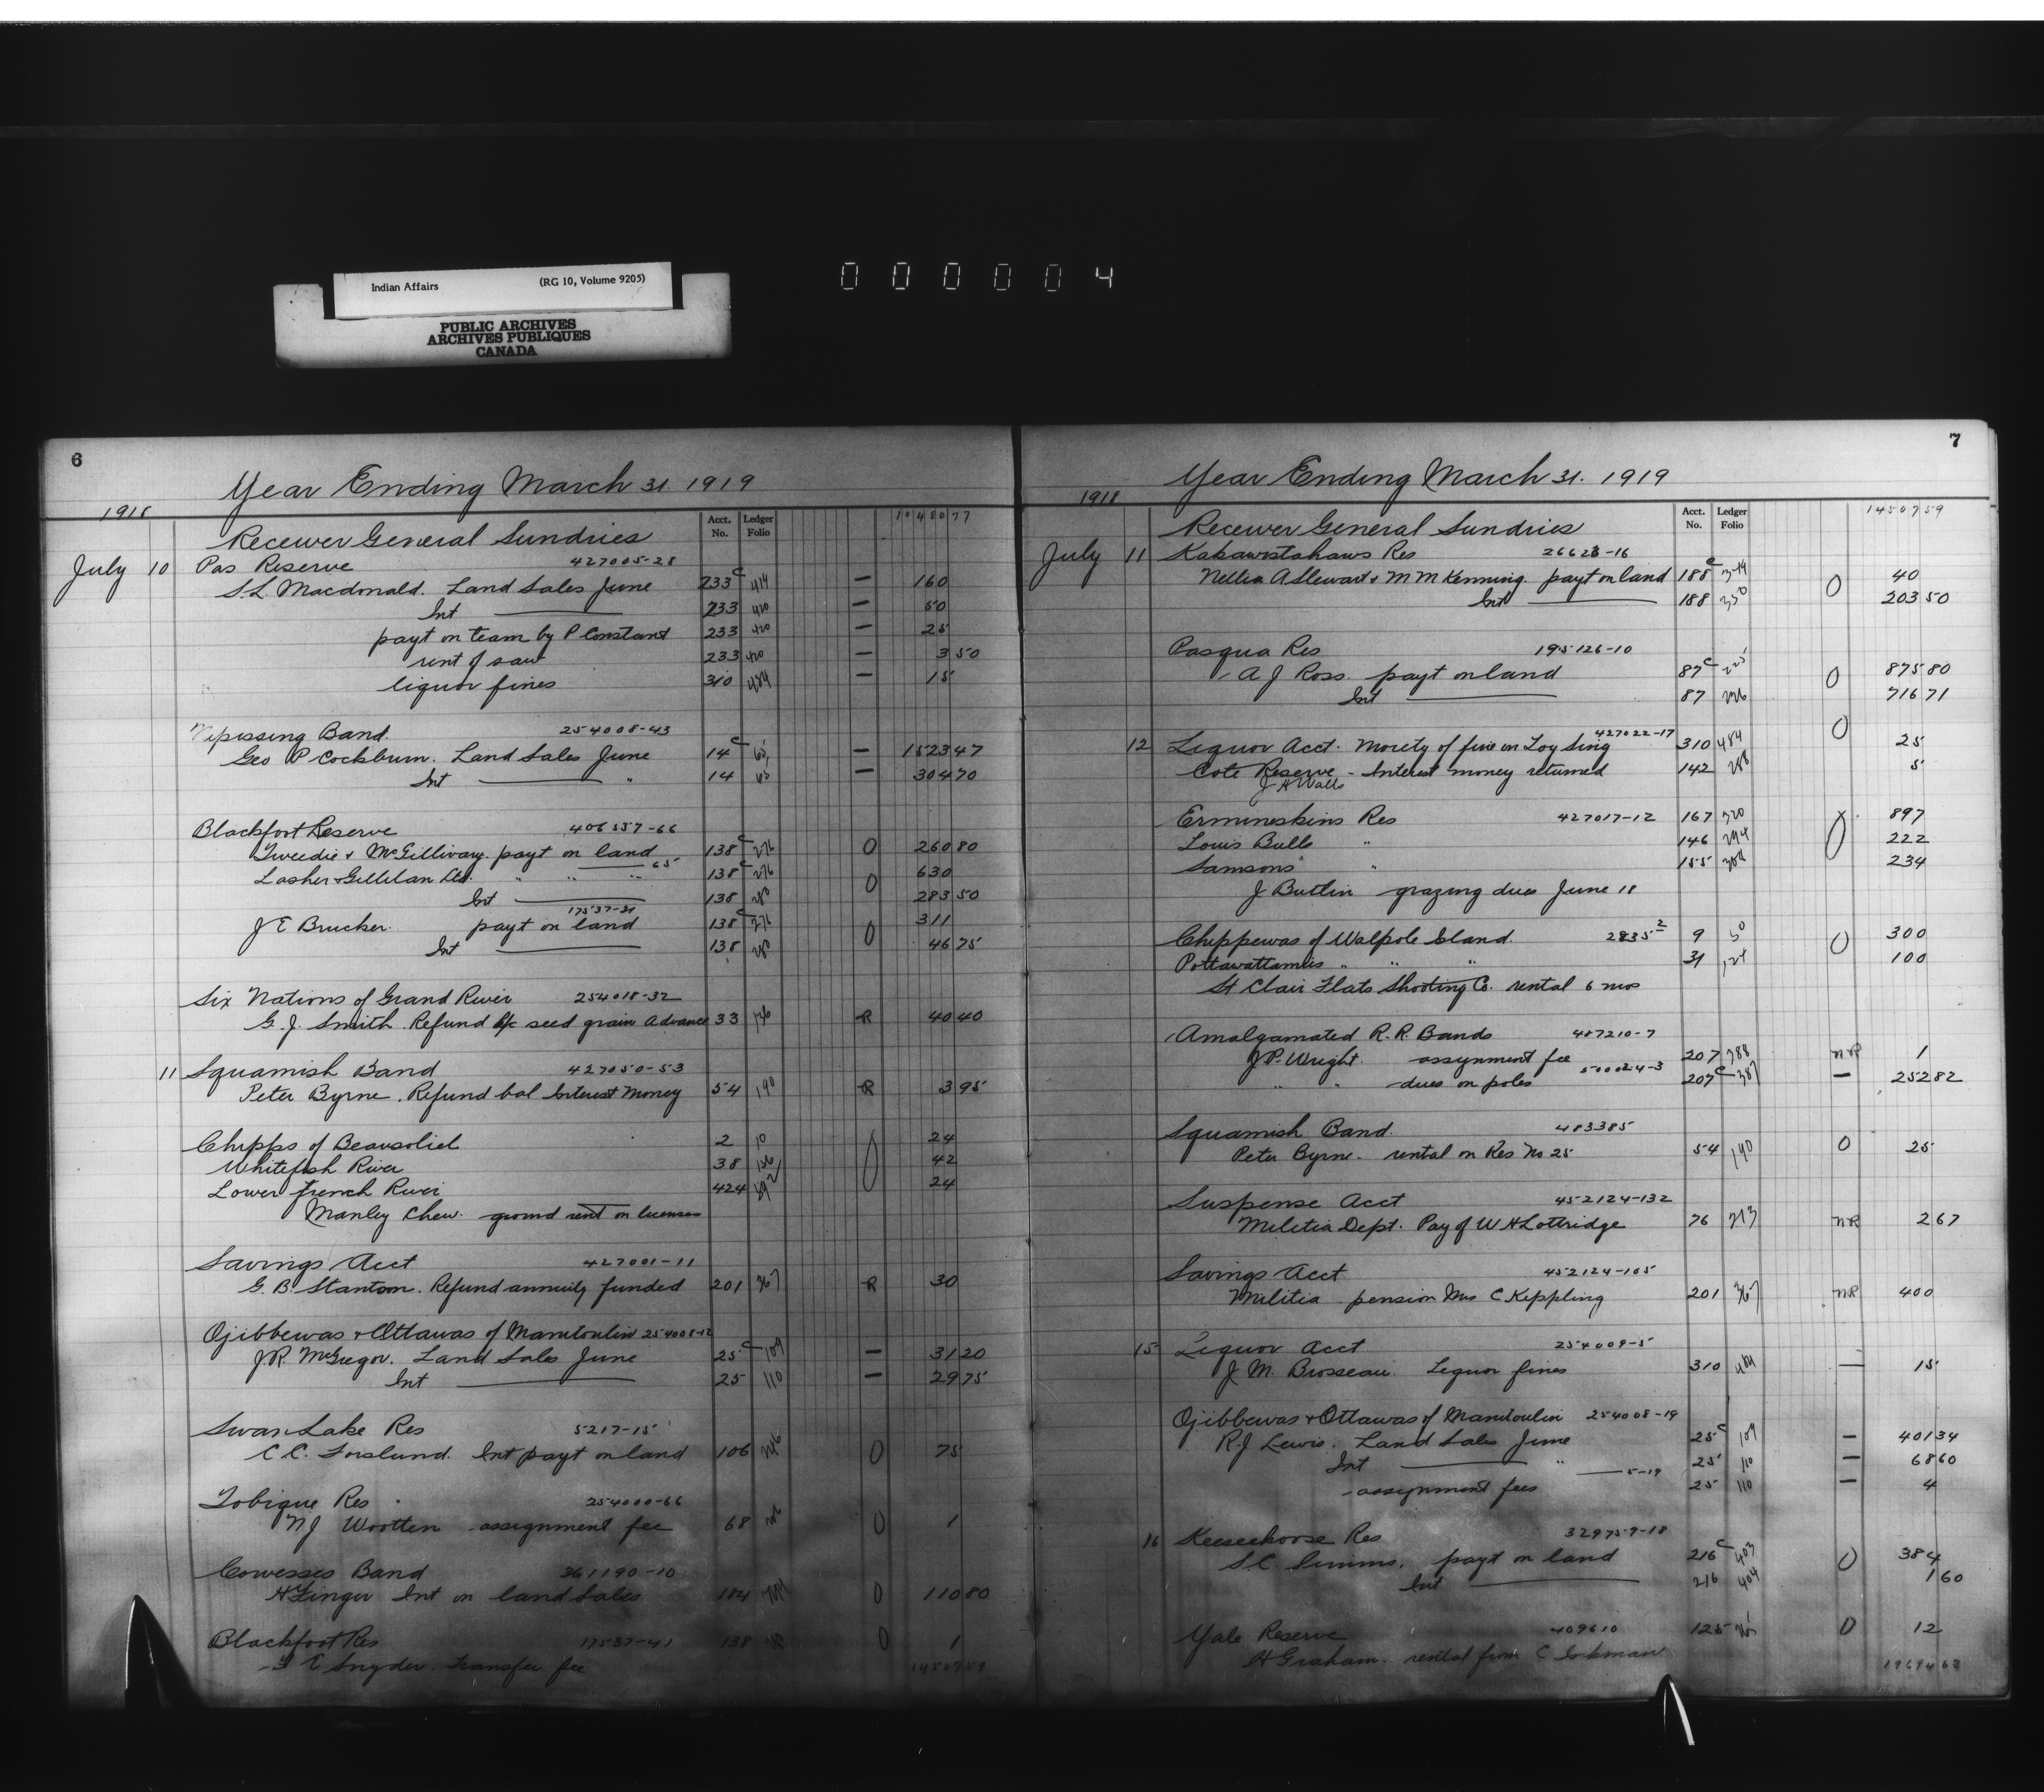 Indian Affairs (RG 10, Volume 9205)
PUBLIC ARCHIVES
ARCHIVES PUBLIQUES
CANADA
000004
6
Year Ending March 31. 1919
1918
Acct. No. Ledger Folio 10480 77
Receiver General Sundries
July 10 Pas Reserve 427005-28
S.L. Macdonald. Land Sales June 233 c 414 — 160
Int 233 420 — 50
payt on team by P Constant 233 420 — 25
rent of saw 233 420 — 3 50
liquor fines 310 484 — 15
Nipissing Band. 254008-43
Geo P Cockburn. Land Sales June 14 c 65 — 1523 47
Int " 14 65 — 304 70
Blackfoot Reserve 406557-66
Tweedie & McGillivary payt on land 138 c 276 0 260 80
— 65
Lasher & Gillilan Ltd. " " " 138 c 276 0 630
Int 138 280 283 50
17537-31
J E Brucker. payt on land 138 c 276 0 311
Int 138 280 46 75
Six Nations of Grand River 254018-32
G. J. Smith. Refund a/c seed grain Advance 33 136 R 40 40
11 Squamish Band 427050-53
Peter Byrne. Refund bal Interest Money 54 190 R 3 95
Chipps of Beausoliel 2 10 0 24
Whitefish River 38 156 42
Lower French River 424 592 24
Manley Chew. ground rent on licenses
Savings Acct 427001-11
G. B. Stanton. Refund annuity funded 201 367 R 30
Ojibbewas & Ottawas of Manitoulin 254008-12
J.R. McGregor. Land Sales June 25 c 109 — 31 20
Int 25 110 — 29 75
Swan Lake Res 5217-15
C C. Forslund. Int payt on land 106 246 0 75
Tobique Res 254000-66
N J Wootten assignment fee 68 0 1
Cowesses Band 361190-10
H Zinger Int on land Sales 184 344 0 110 80
Blackfoot Res 17537-41 138 280 0 1
F E Snyder. Transfer fee
14507 59
7
Year Ending March 31. 1919
1918
Acct. No. Ledger Folio 14507 59
Receiver General Sundries
July 11 Kakawistahaws Res 26623-16
Nellie A Stewart & M M Kenning. payt on land 188 c 349 0 40
Int 188 350 203 50
Pasqua Res 195126-10
A J Ross. payt on land 87 c 225 0 875 80
Int 87 226 716 71
427022-17
12 Liquor Acct. Moiety of fine on Loy Sing 310 484 0 25
Cote Reserve - Interest money returned 142 288 5
J H Walls
Ermineskins Res 427017-12 167 320 897
Louis Bulls " 146 294 0 222
Samsons " 155 304 234
J Butlin grazing dues June 18
Chippewas of Walpole Island. 2835-2 9 50 0 300
Pottawattamies " " " 31 127 100
St Clair Flats Shooting Co. rental 6 mos
Amalgamated R.R. Bands 487210-7
J P. Wright. assignment fee 207 388 NR 1
500024-3
" " dues on poles 207 c 387 — 252 82
Squamish Band. 483385
Peter Byrne. rental on Res No 25 54 190 0 25
Suspense Acct 452124-132
Militia Dept. Pay of W H Lottridge 76 213 NR 2 67
Savings Acct 452124-105
Militia pension Mrs C Keppling 201 367 NR 400
15 Liquor Acct 254009-5
J M. Brosseau. Liquor fines 310 484 — 15
Ojibbewas & Ottawas of Manitoulin 254008-19
R.J Lewis. Land Sales June 25 c 109 — 401 34
Int " 25 110 — 68 60
— 5-19
assignment fees 25 110 — 4
16 Keeseekoose Res 329759-18
S.C. Simms. payt on land 216 c 403 0 384
Int 216 404 1 60
Yale Reserve 409610 125 265 0 12
H Graham. rental from
19694 63